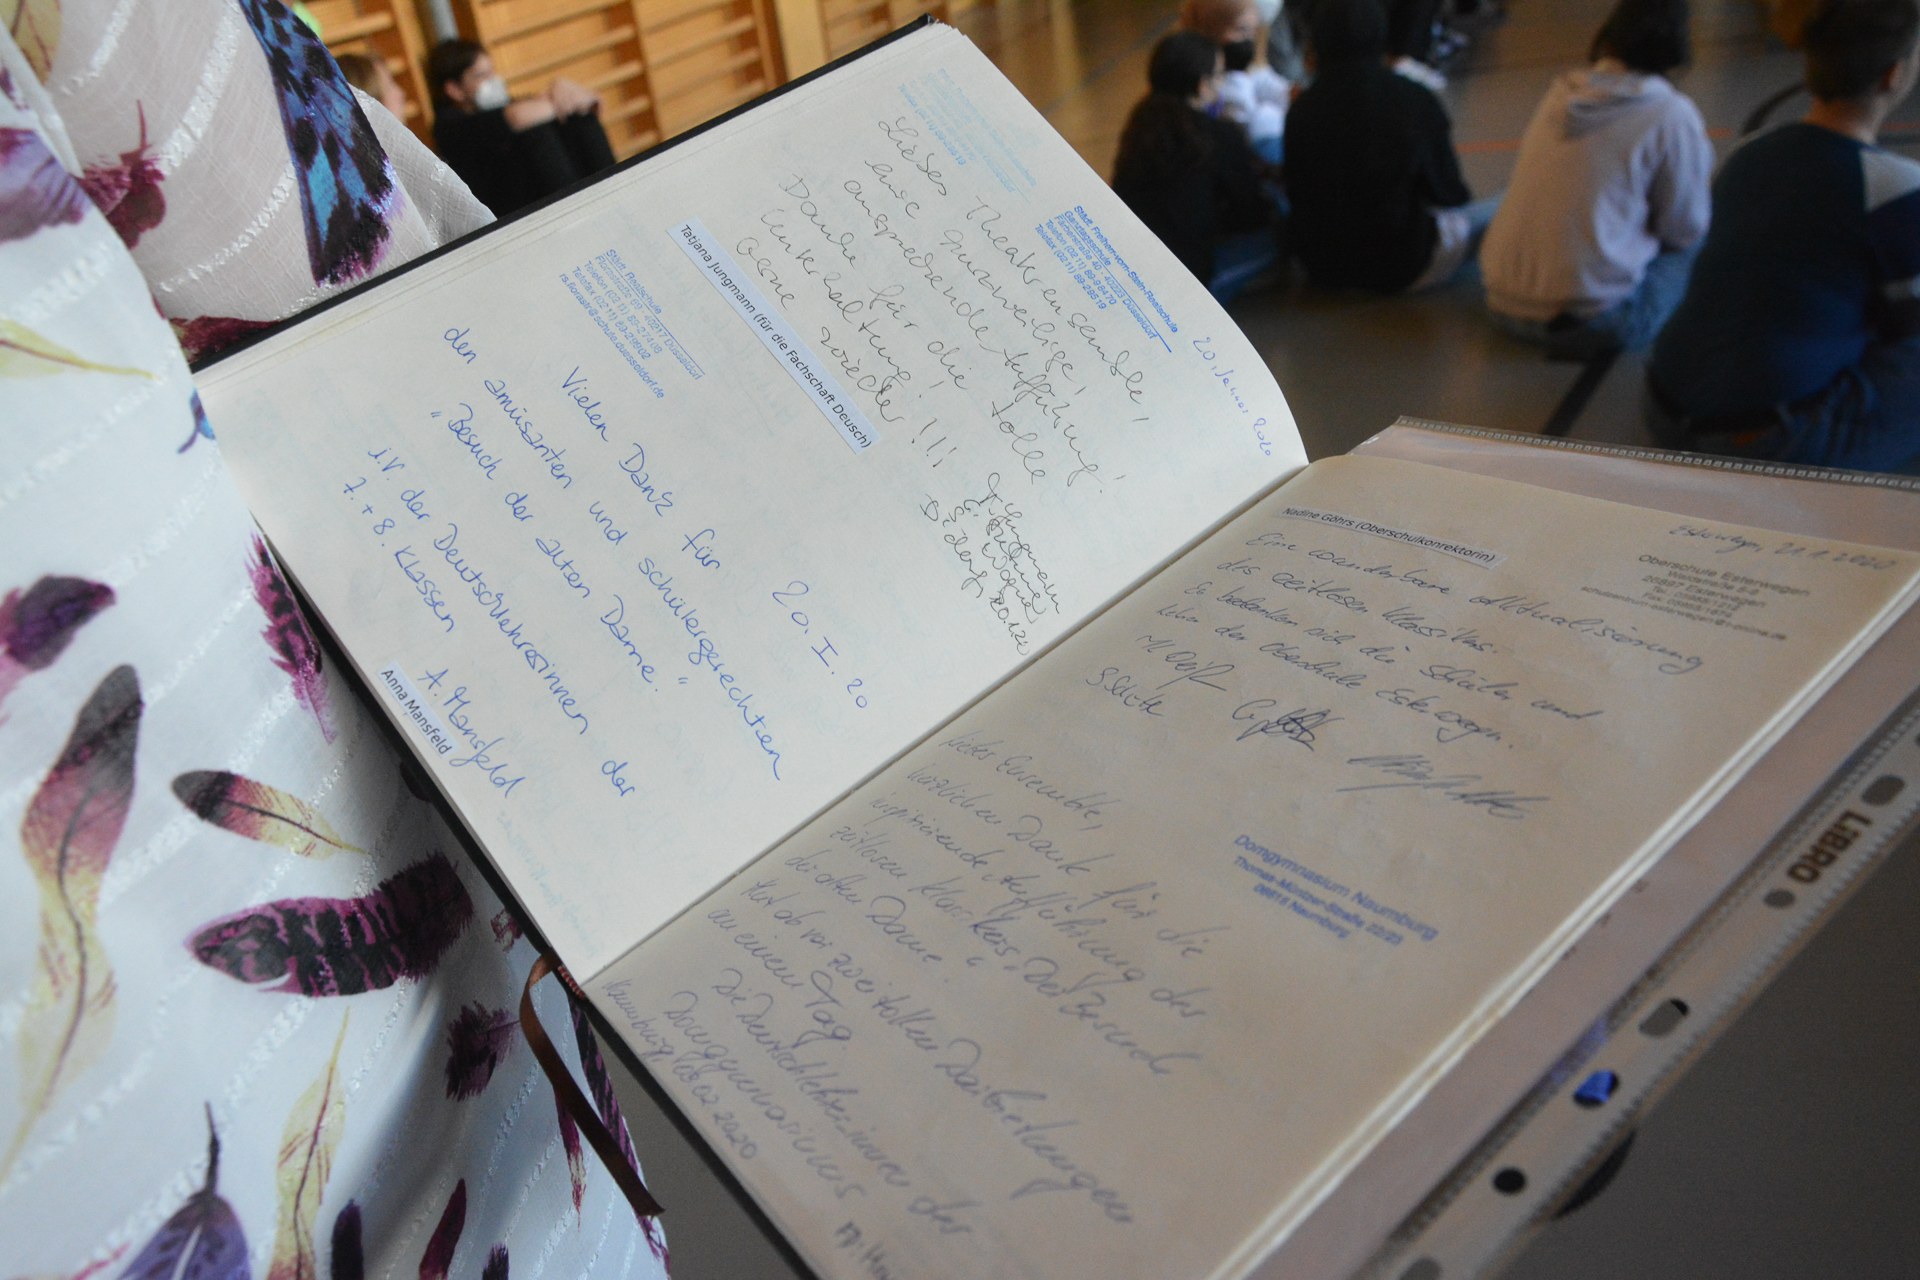 Städt. Freiherr-vom-Stein-Realschule
Ganztagsschule
Färberstraße 40 · 40223 Düsseldorf
Telefon (0211) 89-9 84 70
Telefax (0211) 89-2 95 19
20. Januar 2020
Liebes Theaterensemble,
eine kurzweilige,
ansprechende Aufführung!
Danke für die tolle
Unterhaltung!
Gerne wieder!!!
Tatjana Jungmann (für die Fachschaft Deusch)
Städt. Realschule
Florastraße 69 · 40217 Düsseldorf
Telefon (0211) 89-2 74 08
Telefax (0211) 89-29902
20. I. 20
Vielen Dank für
den amüsanten und schülergerechten
"Besuch der alten Dame."
i.V. der Deutschlehrerinnen der
7. + 8. Klassen
A. Mansfeld
Anna Mansfeld
Nadine Göhrs (Oberschulkonrektorin)
Esterwegen, 21.1.2020
Oberschule Esterwegen
26897 Esterwegen
Eine wunderbare Aktualisierung
des zeitlosen Klassikers.
Es bedanken sich die Schüler und
Lehrer der Oberschule Esterwegen.
Domgymnasium Naumburg
Thomas-Müntzer-Straße 22/23
06618 Naumburg
Liebes Ensemble,
herzlichen Dank für die
inspirierende Aufführung des
zeitlosen Klassikers „Der Besuch
der alten Dame".
Hut ab vor zwei tollen Darbietungen
an einem Tag.
Die Deutschlehrerinnen des
Domgymnasiums
Naumburg, 02 2020
LIBRO